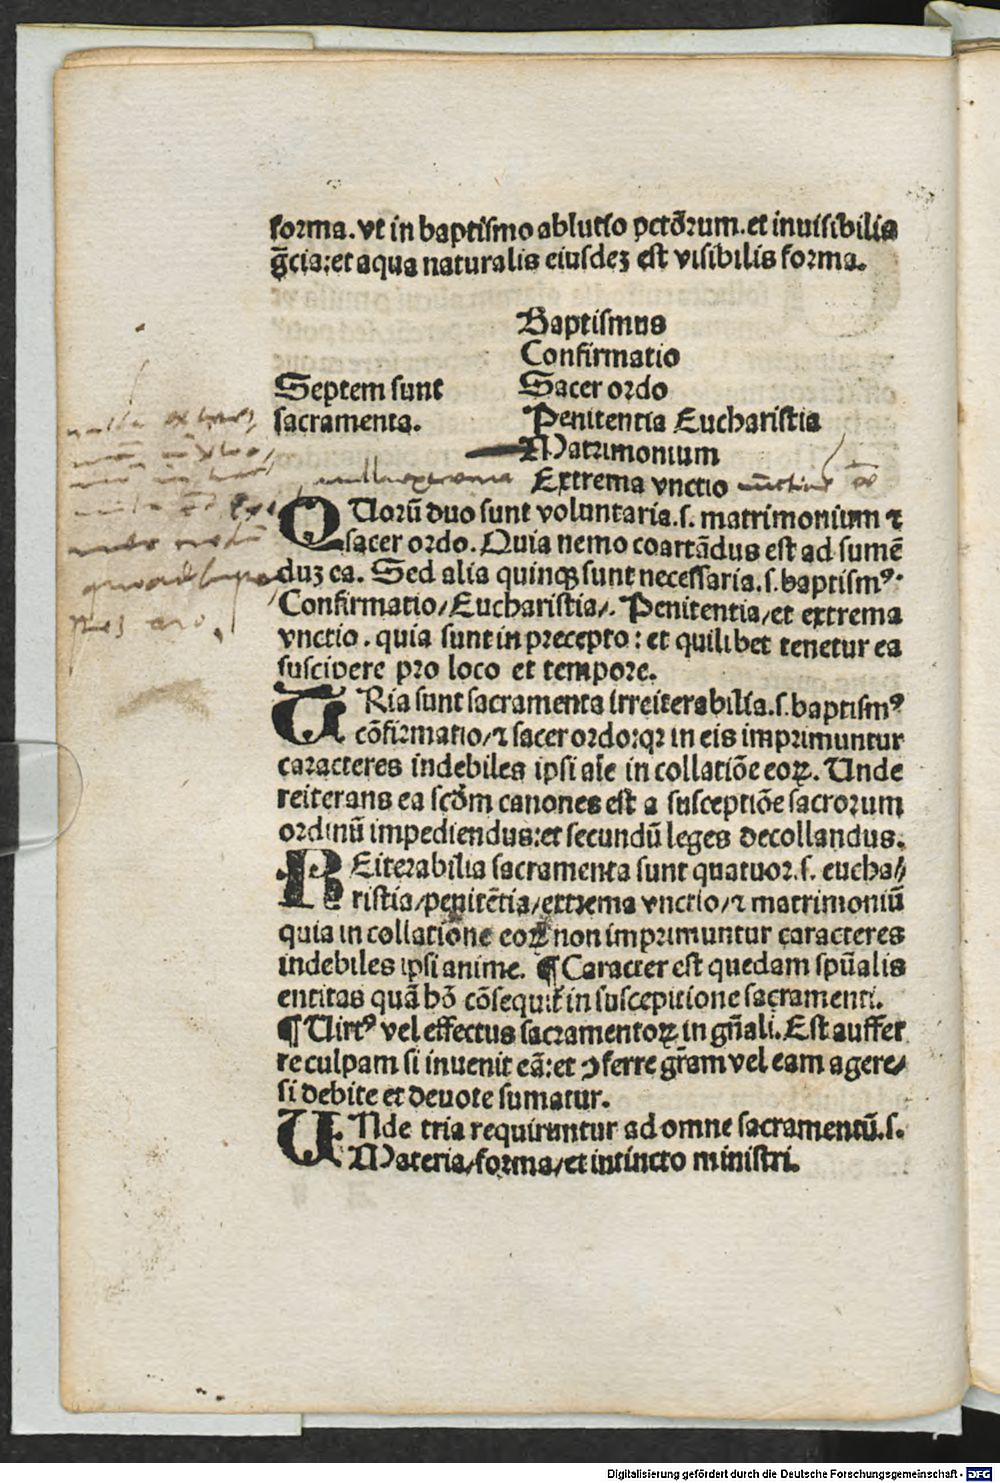 forma. vt in baptismo ablutio pctõrum. et inuisibilis
gr̄cia: et aqua naturalis eiusdeꝫ est visibilis forma.
Baptismus
Confirmatio
Septem sunt Sacer ordo
sacramenta. Penitentia Eucharistia
Matrimonium
Extrema vnctio
QUorū duo sunt voluntaria. s. matrimonium ⁊
sacer ordo. Quia nemo coartādus est ad sumē
duꝫ ea. Sed alia quinqꝫ sunt necessaria. s. baptismꝰ.
Confirmatio/ Eucharistia/. Penitentia/ et extrema
vnctio. quia sunt in precepto: et quilibet tenetur ea
suscipere pro loco et tempore.
TRia sunt sacramenta irreiterabilia. s. baptismꝰ
cōfirmatio/ ⁊ sacer ordo: qꝛ in eis imprimuntur
caracteres indebiles ipsi aīe in collatiōe eoꝝ. Unde
reiterans ea scd̄m canones est a susceptiōe sacrorum
ordinū impediendus: et secundū leges decollandus.
REiterabilia sacramenta sunt quatuor. s. eucha/
ristia/ penitētia/ extrema vnctio/ ⁊ matrimoniū
quia in collatione eoꝝ non imprimuntur caracteres
indebiles ipsi anime. ¶ Caracter est quedam spūalis
entitas quā hō cōsequit᷑ in susceptione sacramenti.
¶ Uirtꝰ vel effectus sacramentoꝝ in gn̄ali. Est auffer
re culpam si inuenit eā: et ꝯferre gr̄am vel eam agere/
si debite et deuote sumatur.
UNde tria requiruntur ad omne sacramentū. s.
Materia/ forma/ et intincto ministri.
Digitalisierung gefördert durch die Deutsche Forschungsgemeinschaft - DFG